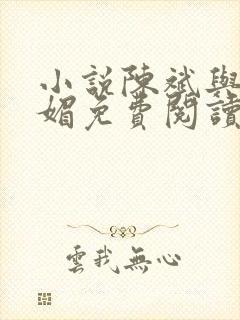 小說陳斌與
媚免費閱讀
雲我無心